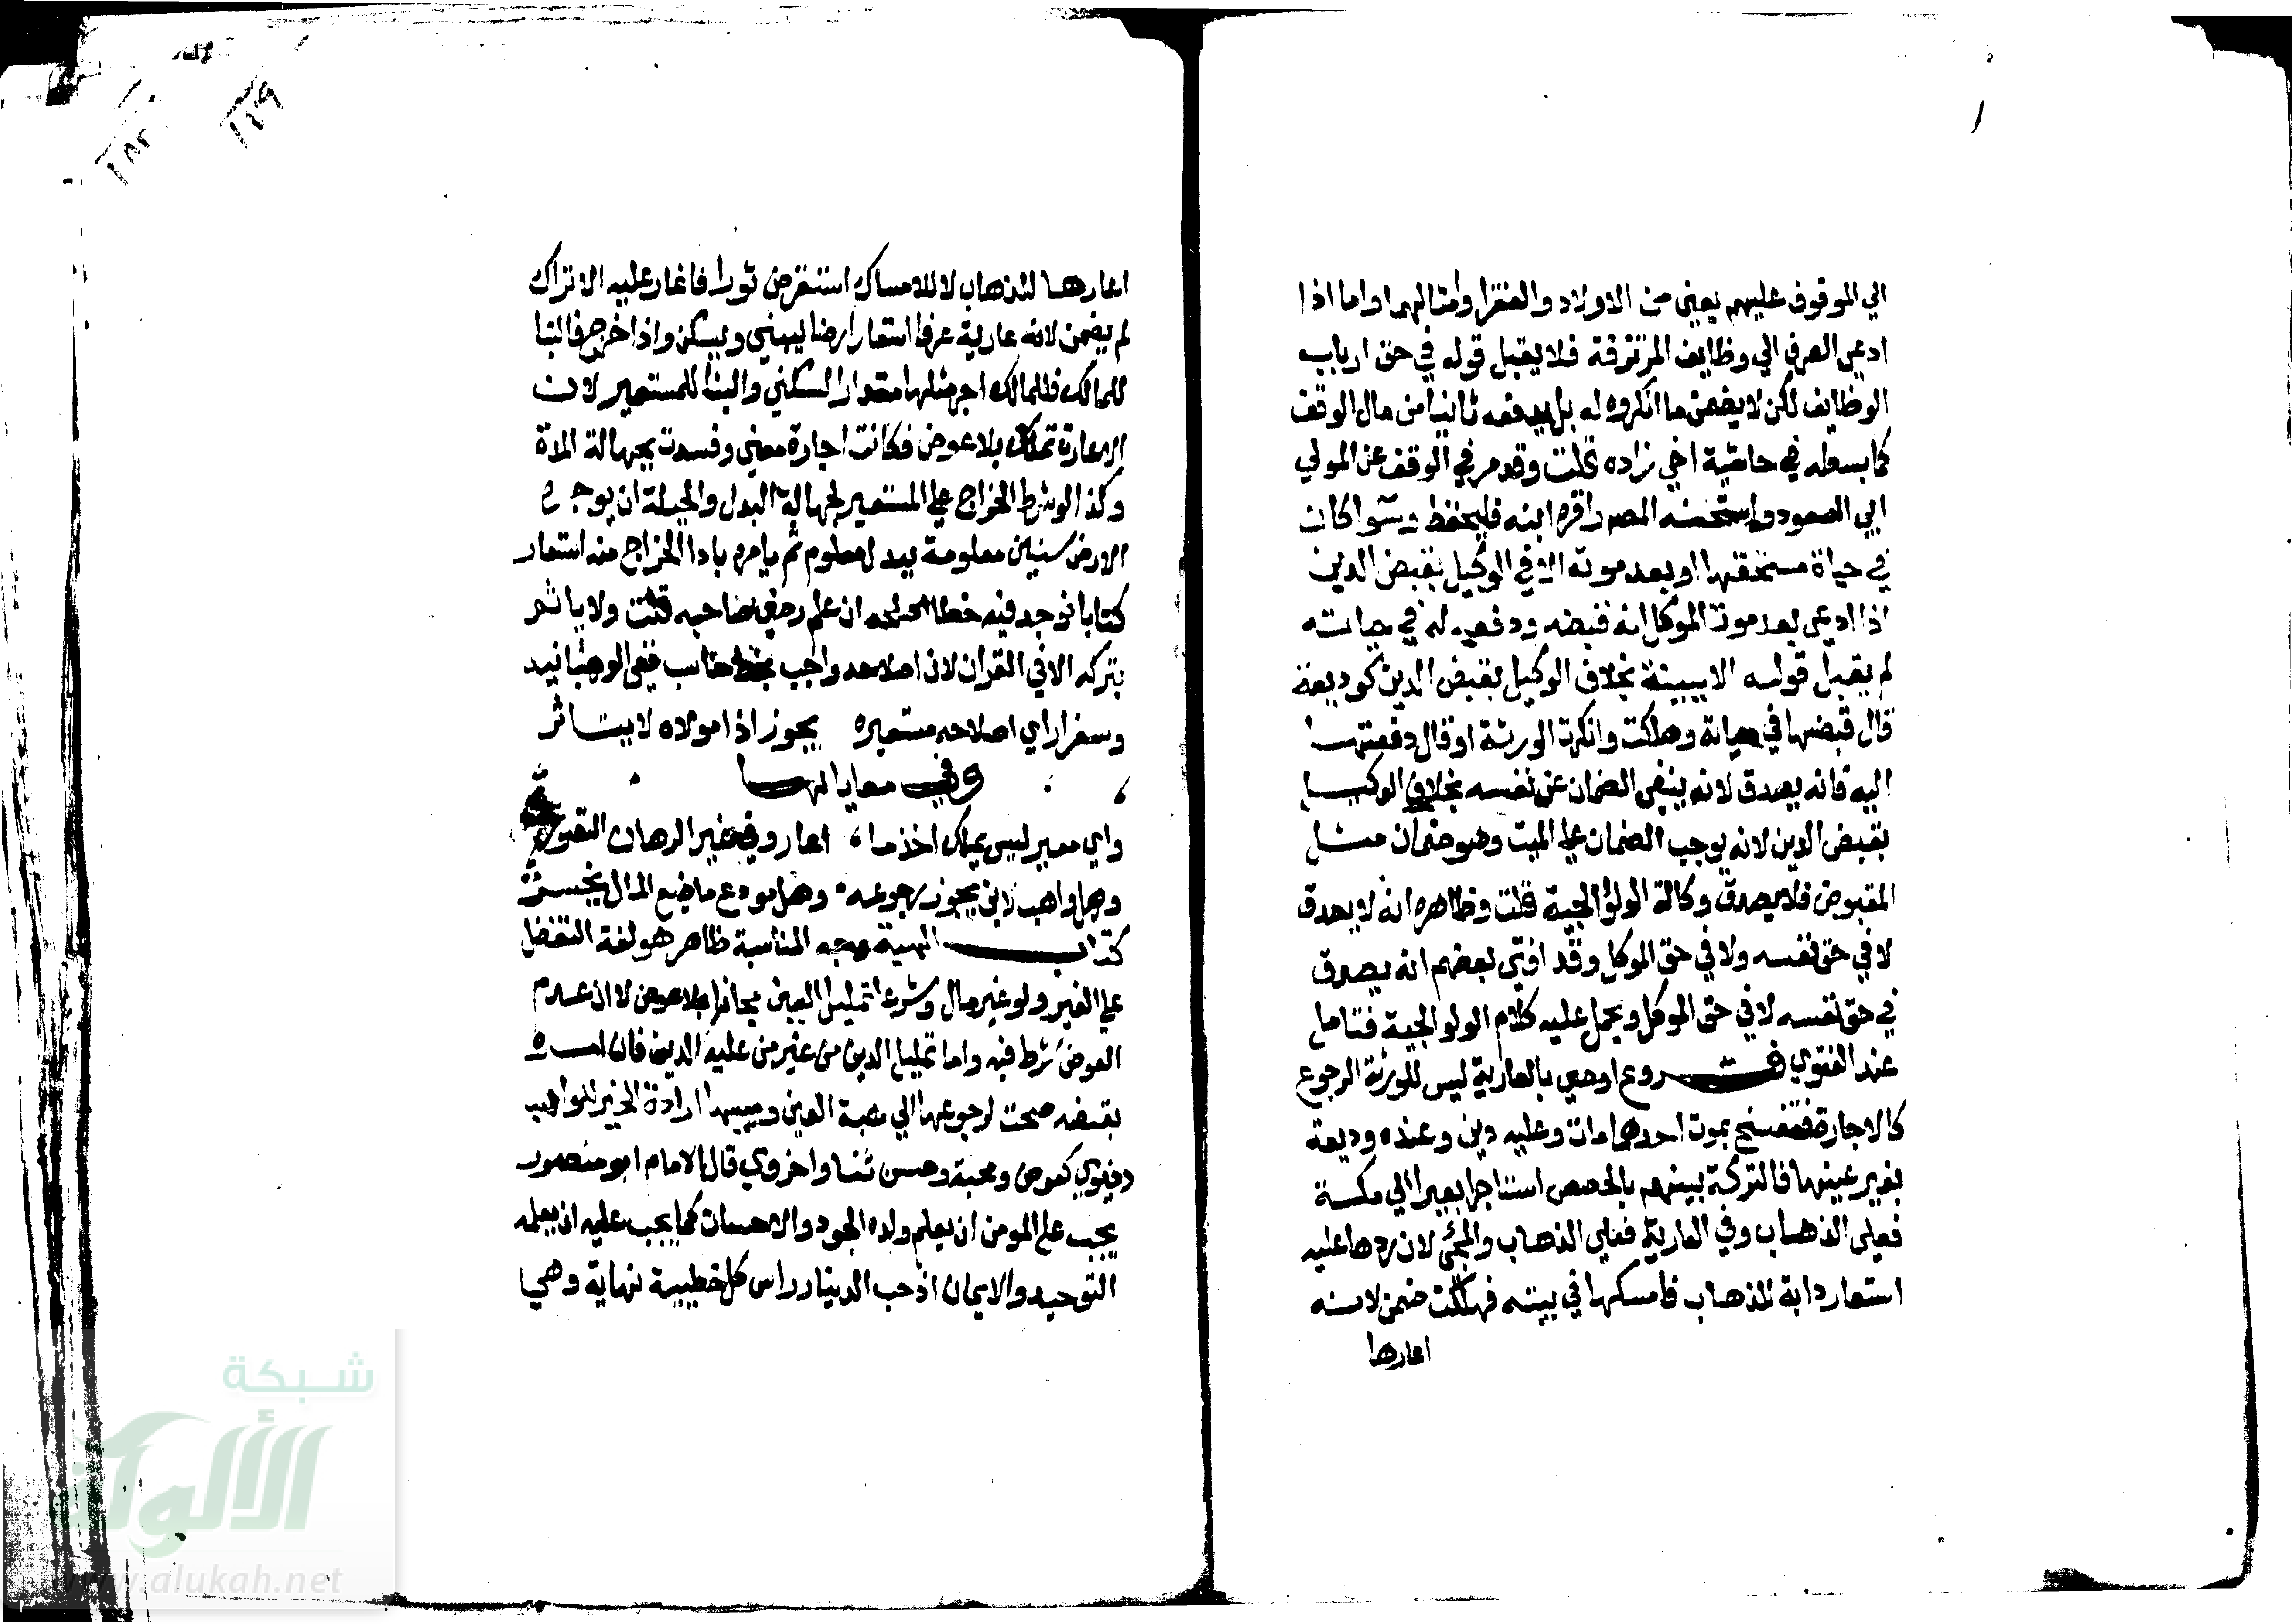 الي الموقوف عليهم يعني من الاولاد والفقرا وامثالهما واما اذا
ادعي الصرف الي وظايف المرتزقة فلا يقبل قوله في حق ارباب
الوظايف لكن لا يضمن ما انكروه له بل يدفعه ثانيا من مال الوقف
كما بسطه في حاشية اخي زاده قلت وقد مر في الوقف عن المولي
ابي السعود واستحسنه المص واقره ابنه فليحفظ وسوا كان
في حياة مستحقها او بعد موته الا في الوكيل بقبض الدين
اذا ادعي بعد موت الموكل انه قبضه ودفعه له في حياته
لم يقبل قوله الا ببينة بخلاف الوكيل بقبض الدين كوديعة
قال قبضتها في حياته وهلكت وانكرت الورثة او قال دفعتها
اليه فانه يصدق لانه ينفي الضمان عن نفسه بخلاف الوكيل
بقبض الدين لانه يوجب الضمان علي الميت وهو ضمان مثل
المقبوض فلا يصدق وكالة الولوالجية قلت وظاهره انه لا يصدق
لا في حق نفسه ولا في حق الموكل وقد افتي بعضهم انه يصدق
في حق نفسه لا في حق الموكل ويحمل عليه كلام الولوالجية فتامل
عند الفتوي فـــروع اوصي بالعارية ليس للورثة الرجوع
كالاجارة فتنفسخ بموت احدهما مات وعليه دين وعنده وديعة
بغير عينها فالتركة بينهم بالحصص استاجر بعيرا الي مكة
فعلي الذهاب وفي العارية فعلي الذهاب والمجئ لان ردها عليه
استعار دابة للذهاب فامسكها في بيته فهلكت ضمن لانه
اعارها
اعارها للذهاب لا للامساك استقرض ثورا فاغار عليه الاتراك
لم يضمن لانه عارية عرفا استعار ارضا ليبني ويسكن واذا خرج فالبنا
للمالك فللمالك اجر مثلها مقدار السكني والبنا للمستعير لان
الاعارة تمليك بلا عوض فكانت اجارة معني وفسدت بجهالة المدة
وكذا لو شرط الخراج علي المستعير لجهالة البدل والحيلة ان يوجره
الارض سنين معلومة ببدل معلوم ثم يامره بادا الخراج منه استعار
كتابا فوجد فيه خطا اصلحه ان علم رضي صاحبه قلت ولا ياثم
بتركه الا في القران لان اصلاحه واجب بخط مناسب ففي الوهبانيه
وسفرا راي اصلاحه مستعيره يجوز اذا مولاه لا يتاثر
وفي معاياتها
واي معير ليس يملك اخذ ما اعار وفي غير الرهان التصور
وهل واهب لابن يجوز رجوعه وهل مودع ما ضيع المال يخسر
كتاب الهبة وجه المناسبة ظاهر هو لغة التفضل
علي الغير ولو غير مال وشرعا تمليك العين مجانا اي بلا عوض لا ان عدم
العوض شرط فيه واما تمليك الدين من غير من عليه الدين فان امره
بقبضه صحت لرجوعها الي هبة العين وسببها ارادة الخير للواهب
دنيوي كعوض ومحبة وحسن ثنا واخروي قال الامام ابو منصور
يجب علي المومن ان يعلم ولده الجود والاحسان كما يجب عليه ان يعلمه
التوحيد والايمان اذ حب الدنيا راس كل خطيية نهاية وهي
شبكة
الألوكة
www.alukah.net